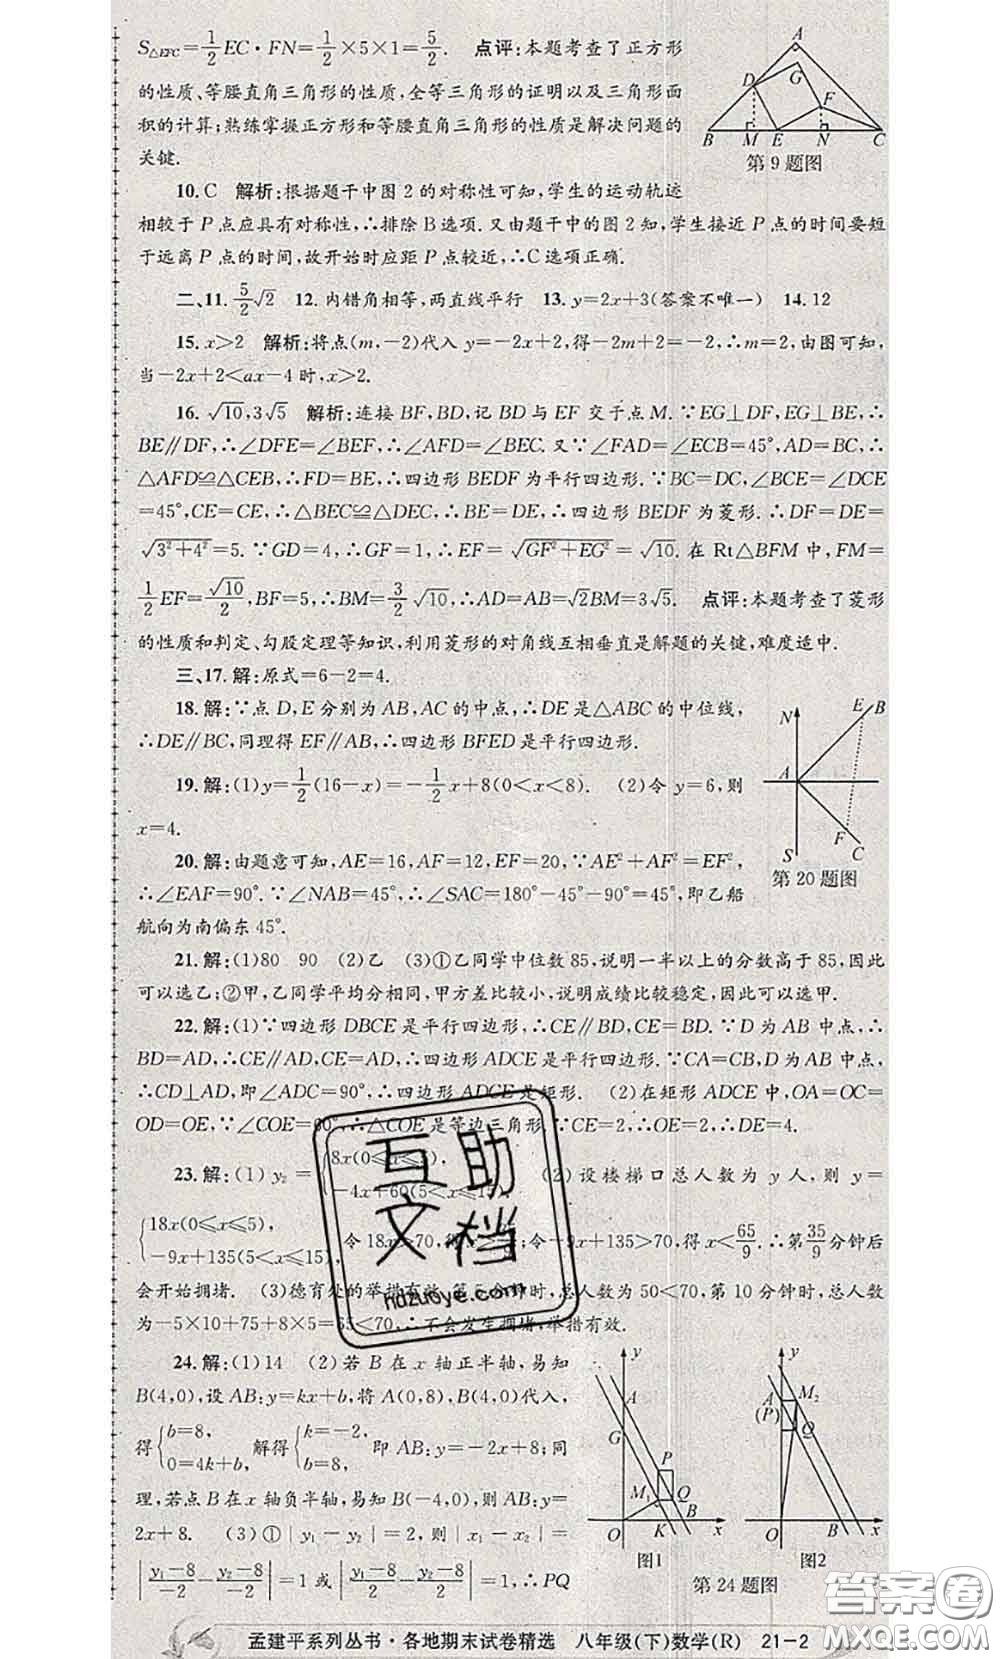 S△EFC=1/2EC·FN=1/2×5×1=5/2. 点评:本题考查了正方形
的性质、等腰直角三角形的性质,全等三角形的证明以及三角形面
积的计算;熟练掌握正方形和等腰直角三角形的性质是解决问题的
关键.
A
D
G
F
B M E N C
第9题图
10.C 解析:根据题干中图2的对称性可知,学生的运动轨迹
相较于P点应具有对称性,∴排除B选项. 又由题干中的图2知,学生接近P点的时间要短
于远离P点的时间,故开始时应距P点较近,∴C选项正确.
二、11.5/2√2 12.内错角相等,两直线平行 13.y=2x+3(答案不唯一) 14.12
15.x>2 解析:将点(m,-2)代入y=-2x+2,得-2m+2=-2,∴m=2,由图可知,
当-2x+2<ax-4时,x>2.
16.√10,3√5 解析:连接BF,BD,记BD与EF交于点M.∵EG⊥DF,EG⊥BE,∴
BE∥DF,∴∠DFE=∠BEF,∴∠AFD=∠BEC.又∵∠FAD=∠ECB=45°,AD=BC,∴
△AFD≌△CEB,∴FD=BE,∴四边形BEDF为平行四边形.∵BC=DC,∠BCE=∠DCE
=45°,CE=CE,∴△BEC≌△DEC,∴BE=DE,∴四边形BEDF为菱形.∴DF=DE=
√(3²+4²)=5.∵GD=4,∴GF=1,∴EF=√(GF²+EG²)=√10.在Rt△BFM中,FM=
1/2EF=√10/2,BF=5,∴BM=3/2√10,∴AD=AB=√2BM=3√5. 点评:本题考查了菱形
的性质和判定、勾股定理等知识,利用菱形的对角线互相垂直是解题的关键,难度适中.
三、17.解:原式=6-2=4.
18.解:∵点D,E分别为AB,AC的中点,∴DE是△ABC的中位线,
∴DE∥BC,同理得EF∥AB,∴四边形BFED是平行四边形.
19.解:(1)y=1/2(16-x)=-1/2x+8(0<x<8). (2)令y=6,则
x=4.
N
E B
A
F
S C
第20题图
20.解:由题意可知,AE=16,AF=12,EF=20,∵AE²+AF²=EF²,
∴∠EAF=90°.∵∠NAB=45°,∴∠SAC=180°-45°-90°=45°,即乙船
航向为南偏东45°.
21.解:(1)80 90 (2)乙 (3)①乙同学中位数85,说明一半以上的分数高于85,因此
可以选乙;②甲,乙同学平均分相同,甲方差比较小,说明成绩比较稳定,因此可以选甲.
22.解:(1)∵四边形DBCE是平行四边形,∴CE∥BD,CE=BD.∵D为AB中点,∴
BD=AD,∴CE∥AD,CE=AD,∴四边形ADCE是平行四边形.∵CA=CB,D为AB中点,
∴CD⊥AD,即∠ADC=90°,∴四边形ADCE是矩形. (2)在矩形ADCE中,OA=OC=
OD=OE,∵∠COE=60°,∴△COE是等边三角形.∵CE=2,∴OE=2,∴DE=4.
23.解:(1)y₂={8x(0≤x≤5), -4x+60(5<x≤15). (2)设楼梯口总人数为y人,则y=
{18x(0≤x≤5), -9x+135(5<x≤15), 令18x>70,得x>;令-9x+135>70,得x<65/9.∴第35/9分钟后
会开始拥堵. (3)德育处的举措有效,第5分钟时,总人数为50<70,第10分钟时,总人数
为-5×10+75+8×5=65<70,∴不会发生拥堵,举措有效.
24.解:(1)14 (2)若B在x轴正半轴,易知
B(4,0),设AB:y=kx+b,将A(0,8),B(4,0)代入,
得{b=8, 0=4k+b, 解得{k=-2, b=8, 即AB:y=-2x+8;同
理,若点B在x轴负半轴,易知B(-4,0),则AB:y=
2x+8. (3)①|y₁-y₂|=2,则|x₁-x₂|=
|(y₁-8)/-2-(y₂-8)/-2|=1或|(y₁-8)/2-(y₂-8)/2|=1,∴PQ
y
A
G
P
M₁
Q
B
O K x
图1
y
A
(P)
M₂
Q
O B x
图2
第24题图
互助
文档
hdzuoye.com
答案圈
MXQE.COM
孟建平系列丛书·各地期末试卷精选 八年级(下)数学(R) 21-2